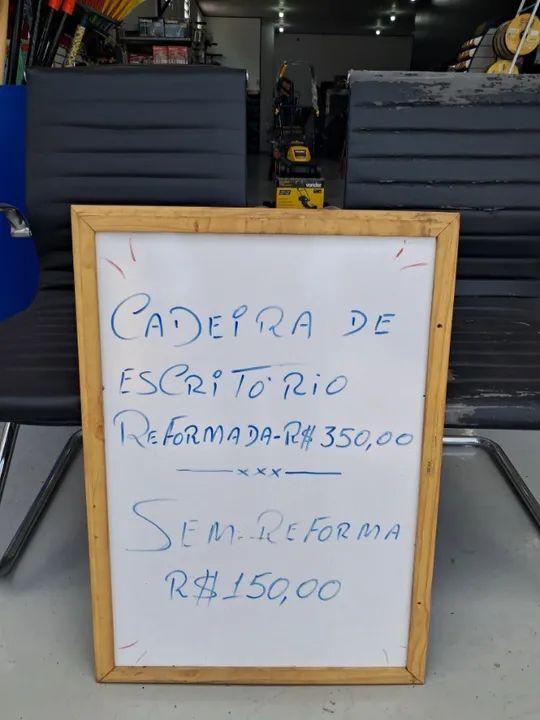 vonder
CADEIRA DE
ESCRITÓRIO
REFORMADA-R$ 350,00
xxx
SEM-REFORMA
R$ 150,00